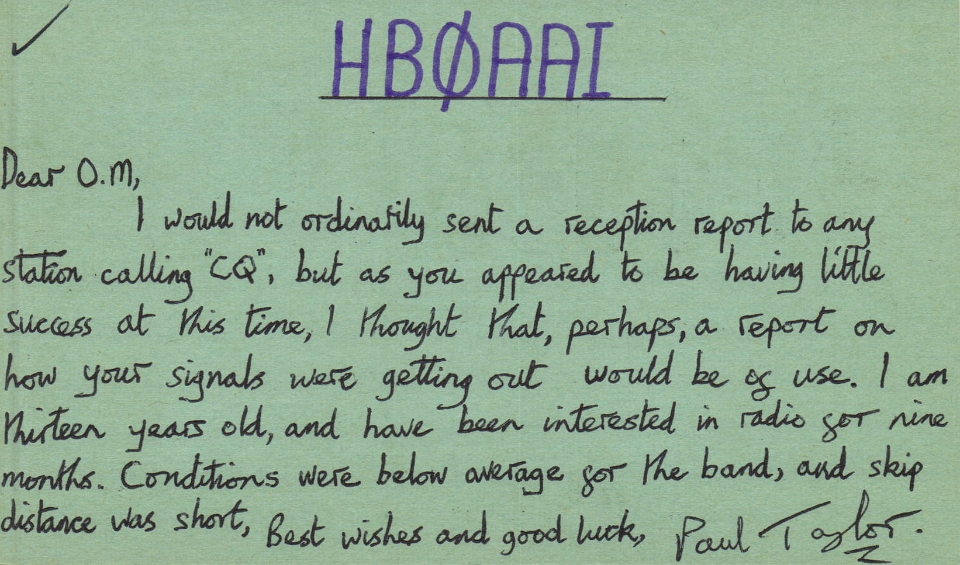 HBØAAI
Dear O.M,
I would not ordinarily sent a reception report to any
station calling "CQ", but as you appeared to be having little
success at this time, I thought that, perhaps, a report on
how your signals were getting out would be of use. I am
thirteen years old, and have been interested in radio for nine
months. Conditions were below average for the band, and skip
distance was short, Best wishes and good luck, Paul Taylor.